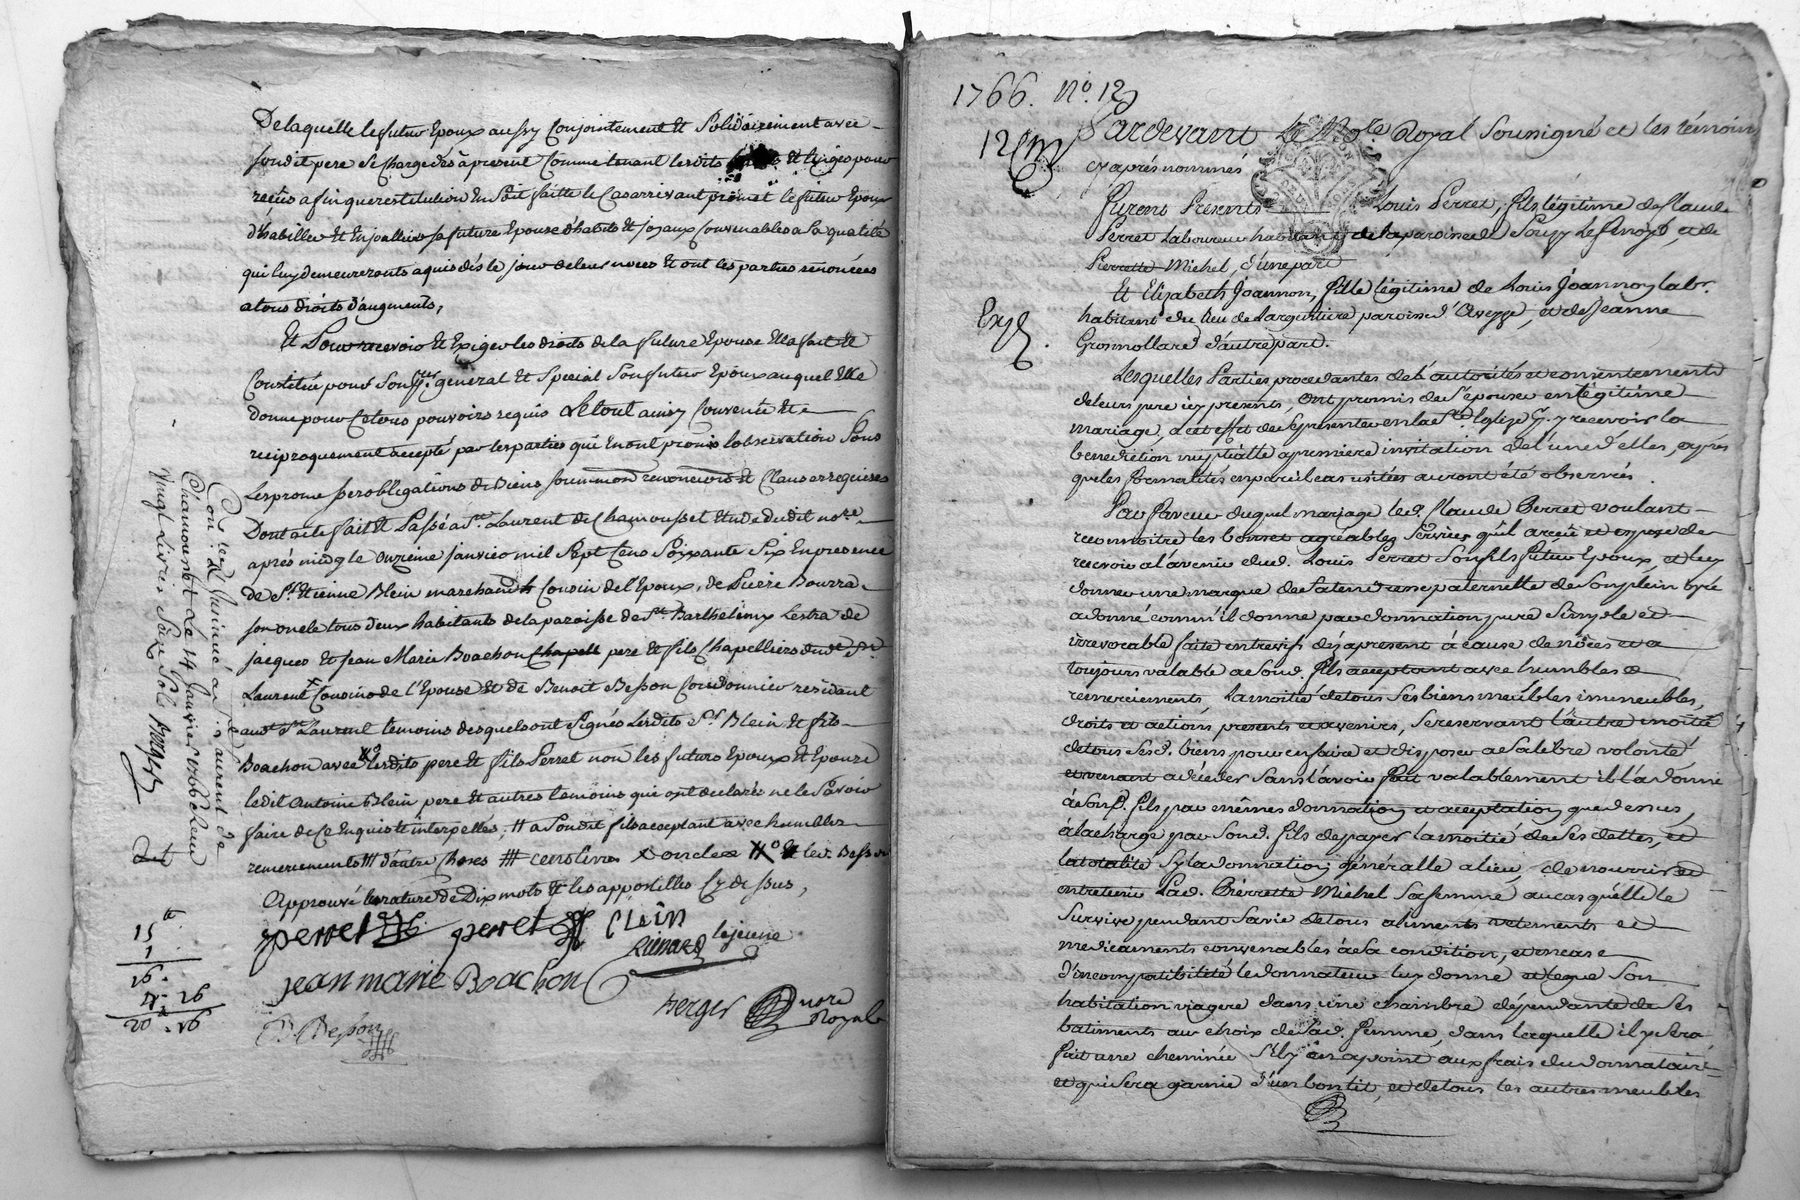 De laquelle le futur Epoux aussy Conjointement Et Solidairement avec
sondit pere se Charge dés à present Comme tenant lesdits Et linges pour
recûs afin que restitution En Soit faitte le Cas arrivant promet le futur Epoux
d'habiller Et Enjoailler sa future Epouse d'habits Et joyaux Convenables a Sa qualité
qui luy demeureronts aquis dés le jour de leurs noces Et ont les parties renoncées
a tous droits d'augments,
Et Pour recevoir Et Exiger les droits de la future Epouse Ella fait Et
Constitué pour Son general Et Special Son futur Epoux auquel Elle
donne pour Ce tous pouvoirs requis Le tout ainsy Convenû Et
reciproquement accepté par les parties qui En ont promis l'observation Sous
Les obligations de Biens Et Clauses requises
Dont acte fait Et Passé a St. Laurent de Chamousset Etude dudit nore
aprés midy le onzieme janvier mil Sept Cens Soixante Six En presence
de Sr. Etienne Blein marchand Cousin de l'Epoux, de Pierre Bourra
son oncle tous deux habitants de la paroisse de St. Barthelemy Lestra de
jacques Et jean Marie Boachon Chapell pere Et fils Chapelliers dud. St.
Laurent Cousins de l'Epouse Et de Benoit Besson Cordonnier resident
aud. St. Laurent temoins desquels ont Signés Lesdits Sr. Blein Et fils
Boachon avec lesdits pere Et fils Perret non les futurs Epoux Et Epouze
ledit Antoine Blein pere Et autres temoins qui ont declarés ne le Savoir
faire de Ce Enquis Et interpellés, a Sondit fils acceptant avec humbles
remerciements d'autre Choses cens livres oncle Et led. Besson
Approuvé la rature de Dix mots Et les appostilles Cy dessus,
perret peret Clein
lejeune
jean marie Boachon
berger nore
Royale
B. Besson
Con. & Insinué a St. Laurent de
Chamousset Le 14 Janvier 1766 Reçu
Vingt Livres Seize Sols Berger
15
1
16.
4. 16
20. 16
1766. No. 12
Pardevant Le Nore Royal Sousigné et les témoins
cy aprés nommés
Furent Presents Louis Perret, fils légitime de Claude
Perret Laboureur habitant de la paroisse de Souzy Le et de
Pierrette Michel, d'une part
Et Elizabeth Joannon, fille légitime de Louis Joannon labr.
habitant du lieu de Larguitiere paroisse d'Aveyze, et de Jeanne
Gronnollard d'autre part.
Exp.
Lesquelles Parties procedantes de l'autorités et consentement
de leurs pere icy presents, ont promis de S'épouser en légitime
mariage, a cet effet de se presenter en la Ste. Eglise pr. y recevoir la
benediction nuptialle a premiere invitation de l'une d'elles, aprés
que les formalités en pareil cas usitées auront été observées.
En Faveur duquel mariage led. Claude Perret voulant
reconnoitre les bons et agréables Services qu'il a reçû et espere de
recevoir a l'avenir dud. Louis Perret Son fils futur Epoux, et luy
donner une marque de Sa tendresse paternelle de Son plein gré
a donné comm'il donne par donnation pure Simple et
irrevocable faite entrevifs dés a present à cause de nôces et a
toujours valable a Sond. fils acceptant avec humbles
remerciements, La moitié de tous Ses biens meubles immeubles,
droits et actions presents et avenirs, Se reservant l'autre moitié
de tous Sesd. biens pour en faire et disposer a Sa libre volonté,
et venant a décéder Sans l'avoir fait valablement il l'a donne
à Sond. fils par mêmes donnation et acceptation que dessus,
à la charge par Sond. fils de payer la moitié de Ses dettes, et
la totalité Sy la donnation généralle a lieu, de nourrir et
entretenir Lad. Pierrette Michel Sa femme au cas qu'elle le
Survive pendant Sa vie de tous aliments vetements et
medicaments convenables à Sa condition, et en cas
d'incompatibilité le donnateur luy donne et legue Son
habitation viagere dans une chambre dépendante de Ses
batiments au choix de Sad. femme, dans laquelle il y Sera
fait une cheminée S'il n'y en a point aux frais du donnataire
et qui Sera garnie d'un bon lit, et de tous les autres meubles